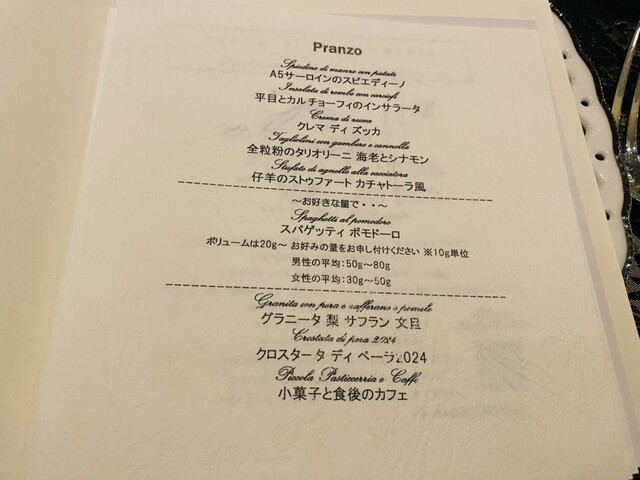 Pranzo
Spiedino di manzo con patate
A5サーロインのスピエディーノ
Insalata di rombo con carciofi
平目とカルチョーフィのインサラータ
Crema di zucca
クレマ ディ ズッカ
Tagliolini con gambero e cannella
全粒粉のタリオリーニ 海老とシナモン
Stufato di agnello alla cacciatora
仔羊のストゥファート カチャトーラ風
～お好きな量で・・～
Spaghetti al pomodoro
スパゲッティ ポモドーロ
ボリュームは20g～ お好みの量をお申し付けください ※10g単位
男性の平均：50g～80g
女性の平均：30g～50g
Granita con pera e zafferano e pomelo
グラニータ 梨 サフラン 文旦
Crostata di pera 2024
クロスタータ ディ ペーラ2024
Piccola Pasticceria e Caffe
小菓子と食後のカフェ